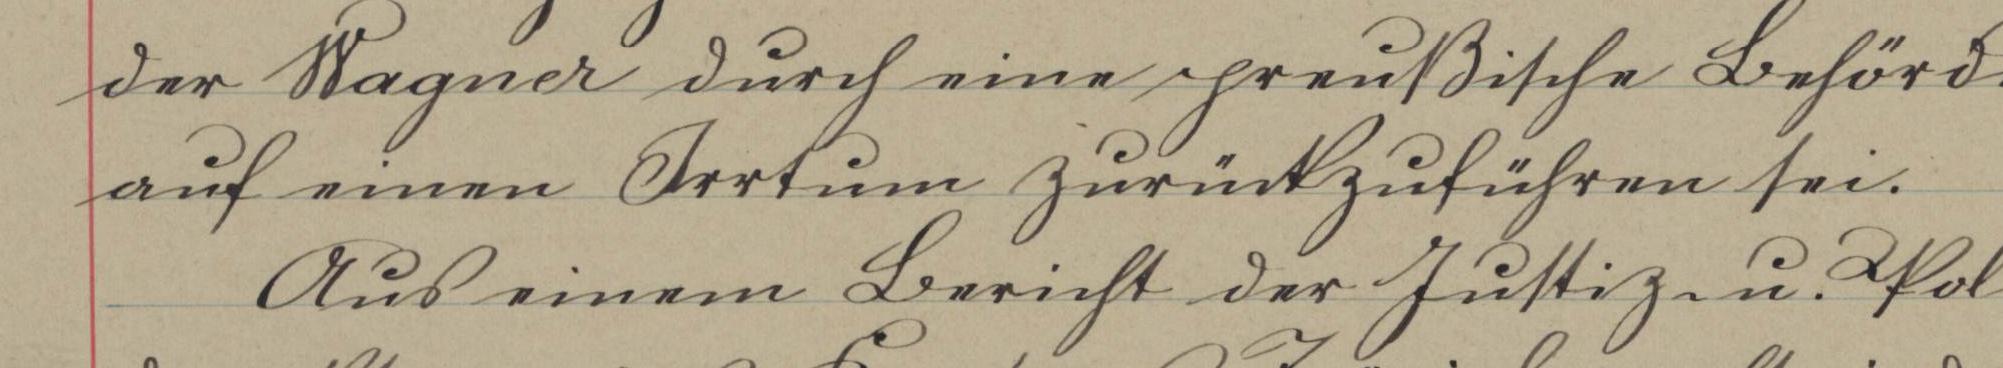 der Wagner durch eine preußische Behörd
auf einen Irrtum zurückzuführen sei.
Aus einem Bericht der Justiz- u. Pol